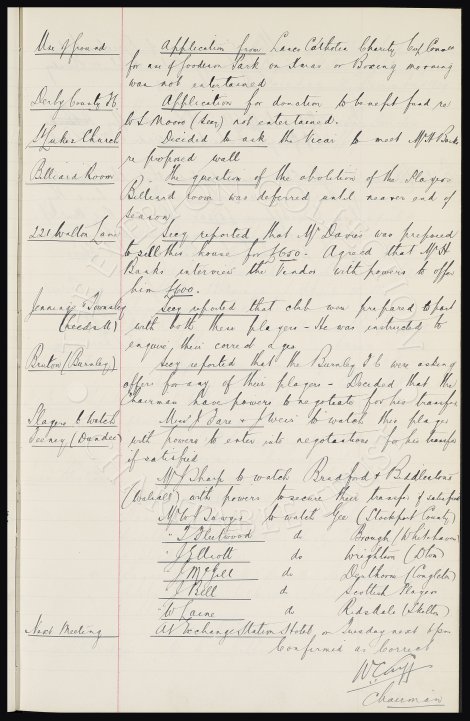 Use of Ground Application from Lancs Catholic Charity Cup Comm
for use of Goodison Park on Xmas or Boxing morning
was not entertained
Derby County FC Application for donation to benefit fund re
W. S. Moore (Secy) not entertained.
St Lukes Church Decided to ask the Vicar to meet Mr H Banks
re proposed wall
Billiard Room The question of the abolition of the Players
Billiard room was deferred until nearer end of
season
221 Walton Lane Secy reported that Mr Davies was prepared
to sell this house for £650. Agreed that Mr H
Banks interview the Vendor with powers to offer
him £600.
Jennings & Townsley Secy reported that club were prepared to part
(Leeds U) with both these players - He was instructed to
enquire their correct ages
Bruton (Burnley) Secy reported that the Burnley F C were asking
offers for any of their players - Decided that the
Chairman have powers to negotiate for his transfer
Players to Watch Messrs Fare & J Weir to watch this player
(Dundee) with powers to enter into negotiations for his transfer
if satisfied
Mr J Sharp to watch Bradford & Biddlestone
(Walsall) with powers to secure their transfer if satisfied
Mr W J Sawyer to watch Gee (Stockport County)
" T Fleetwood do Brough (Whitehaven)
" J Elliott do Wrighton (Dtn)
" J McGill do (Congleton)
" J Bell do Scottish Player
" W Caine do Ridsdale (Skelton)
Next Meeting At Exchange Station Hotel, on Tuesday next 6pm
Confirmed as Correct
W C Cuff
Chairman